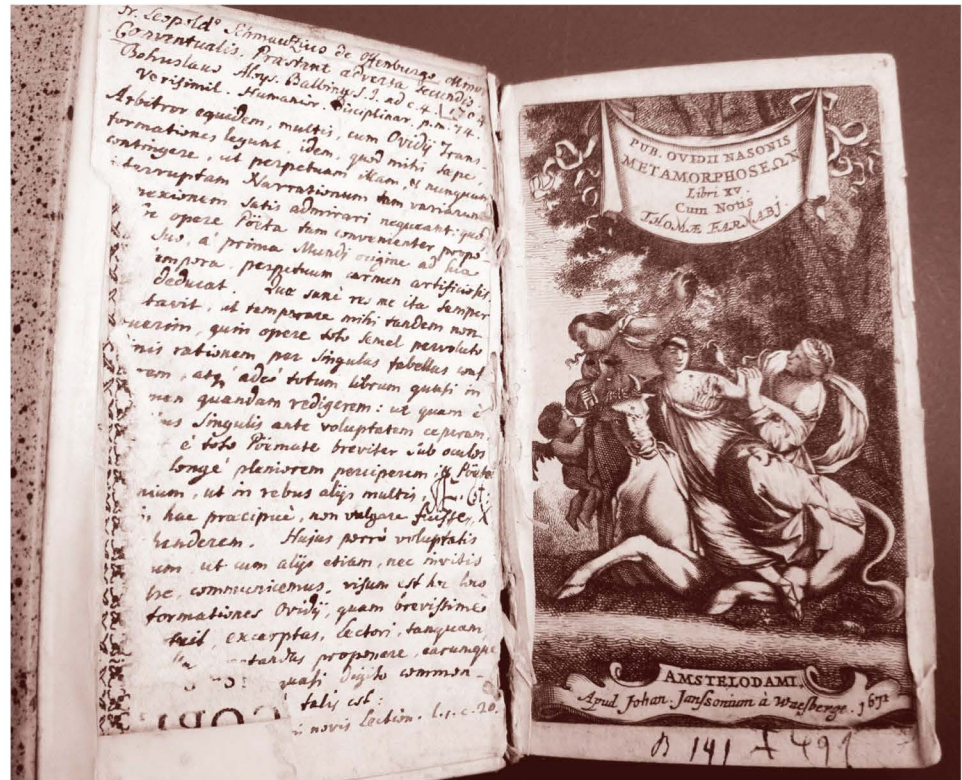 Fr. Leopoldo Schmauzius de Offenburgo, Minor.
Conventualis. Praestant adversa secundis.
Bohuslaus Aloys. Balbinus S. J. ad c. 4. 1704
Verisimil. Humanior. Disciplinar. p. m. 74.
Arbitror equidem, multis, cum Ovidij Trans-
formationes legunt, idem, quod mihi saepe,
contingere, ut perpetuam illam, & nunquam
interruptam Narrationum tam variarum
nexionem satis admirari nequeant: quod
opere Poëta tam convenienter propo-
suo, a' prima Mundi origine ad sua
tempora, perpetuum carmen artificiosis
deducat. Quae sanè res me ita semper
tavit, ut temperare mihi tandem non
uerim, quin opere toto semel pervoluto
nis rationem, per singulas fabellas conf
rem, atq; adeò totum librum quasi in
nan quandam redigerem: ut quam è
ius singulis ante voluptatem ceperam,
è toto Poëmate breviter sub oculos
longè pleniorem perciperem, & Poëta
nium, ut in rebus alijs multis,
hac praecipuè, non vulgare fuisse, X
henderem. Hujus porrò voluptatis
um, ut cum alijs etiam, nec invitis
re, communicemus, visum est hic loco
formationes Ovidij, quam brevissimè
excerptas, Lectori, tanquam
tandas proponere, earumque
quasi digito commen-
talis est:
novis Lection. l. 1. c. 20.
PUB. OVIDII NASONIS
METAMORPHOSEΩN
Libri XV.
Cum Notis
THOMÆ FARNABJ.
AMSTELODAMI,
Apud Johan. Janssonium à Waesberge. 1671
B 141 + 491